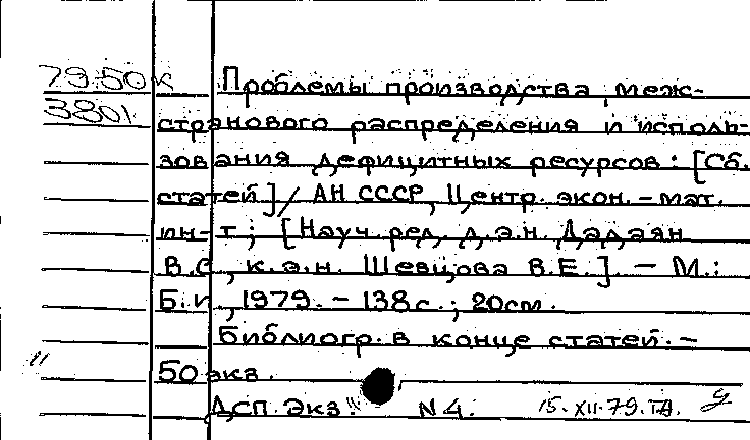 79-50к
3801
Проблемы производства, меж-
странового распределения и исполь-
зования дефицитных ресурсов: [Сб.
статей] / АН СССР, Центр. экон.-мат.
ин-т; [Науч. ред. д.э.н. Дадаян
В.С., к.э.н. Шевцова В.Е.]. - М.:
Б.и., 1979. - 138с.; 20см.
Библиогр. в конце статей. -
50 экз.
ДСП. Экз. N 4.
15.XII.79.